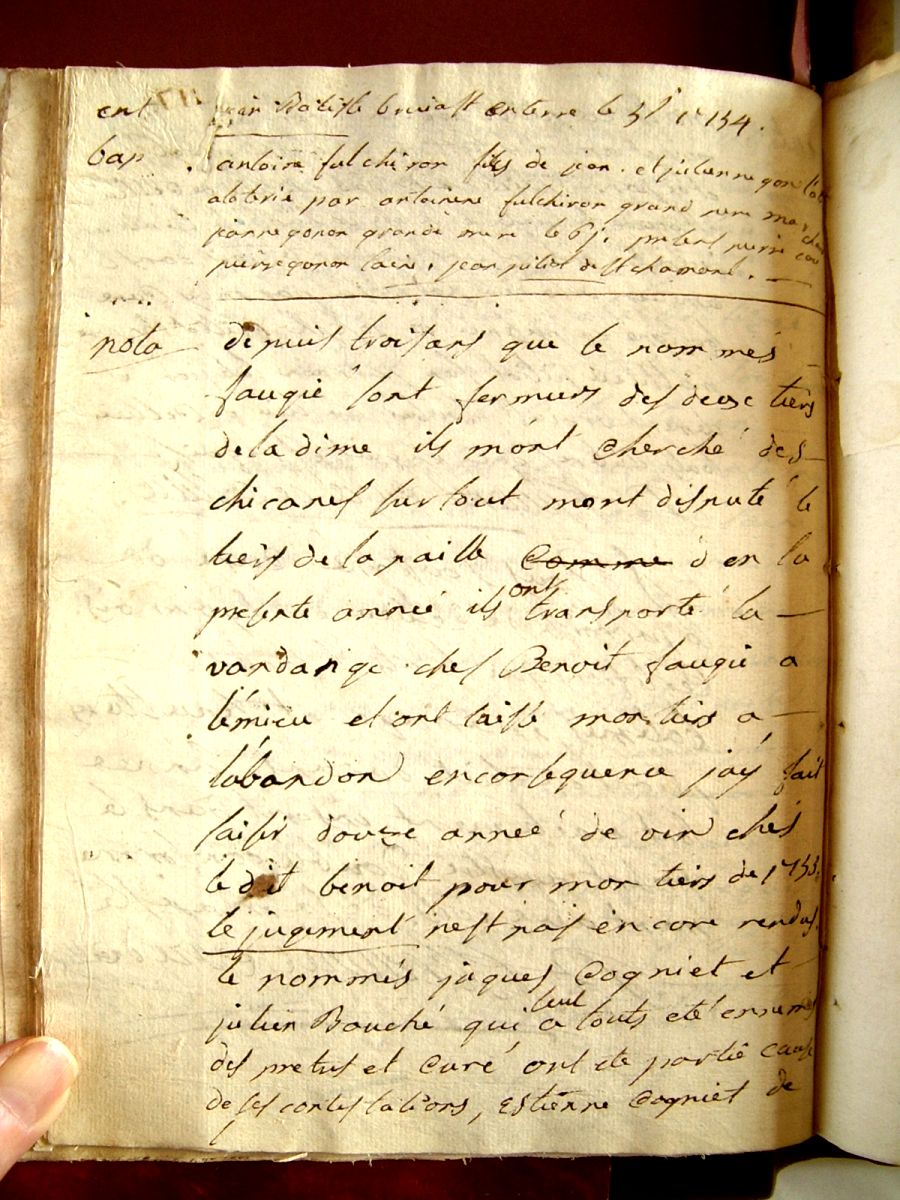 ent jean Batiste bruiast enterre le 3e 1734.
bap. antoine fulchiron fils de jean. et julienne gonon
par antoinene fulchiron grand pere
jeanne gonon grande mere le 6j. present pierre
pierre gonon laine. jean juliet de st chamont.
nota depuis troisans que le nommés
faugié sont fermiers des deux tiers
de la dime ils mont cherché des
chicanes sur tout mont disputé le
tiers de la paille comme d en la
presente anneé ils ont transporté la
vandange ches Benoit faugie a
lémieu et ont laisse mon tiers a
lábandon enconsequence jáy fait
saisir douze anneé de vin chés
le dit benoit pour mon tiers de 1733.
le jugement nest pas encore rendus.
le nommés jaques Cogniet et
julien Bouché qui a touts eté ennemis
des pretres et curé ont ete partie cause
de ses contestations, estienne Cogniet de